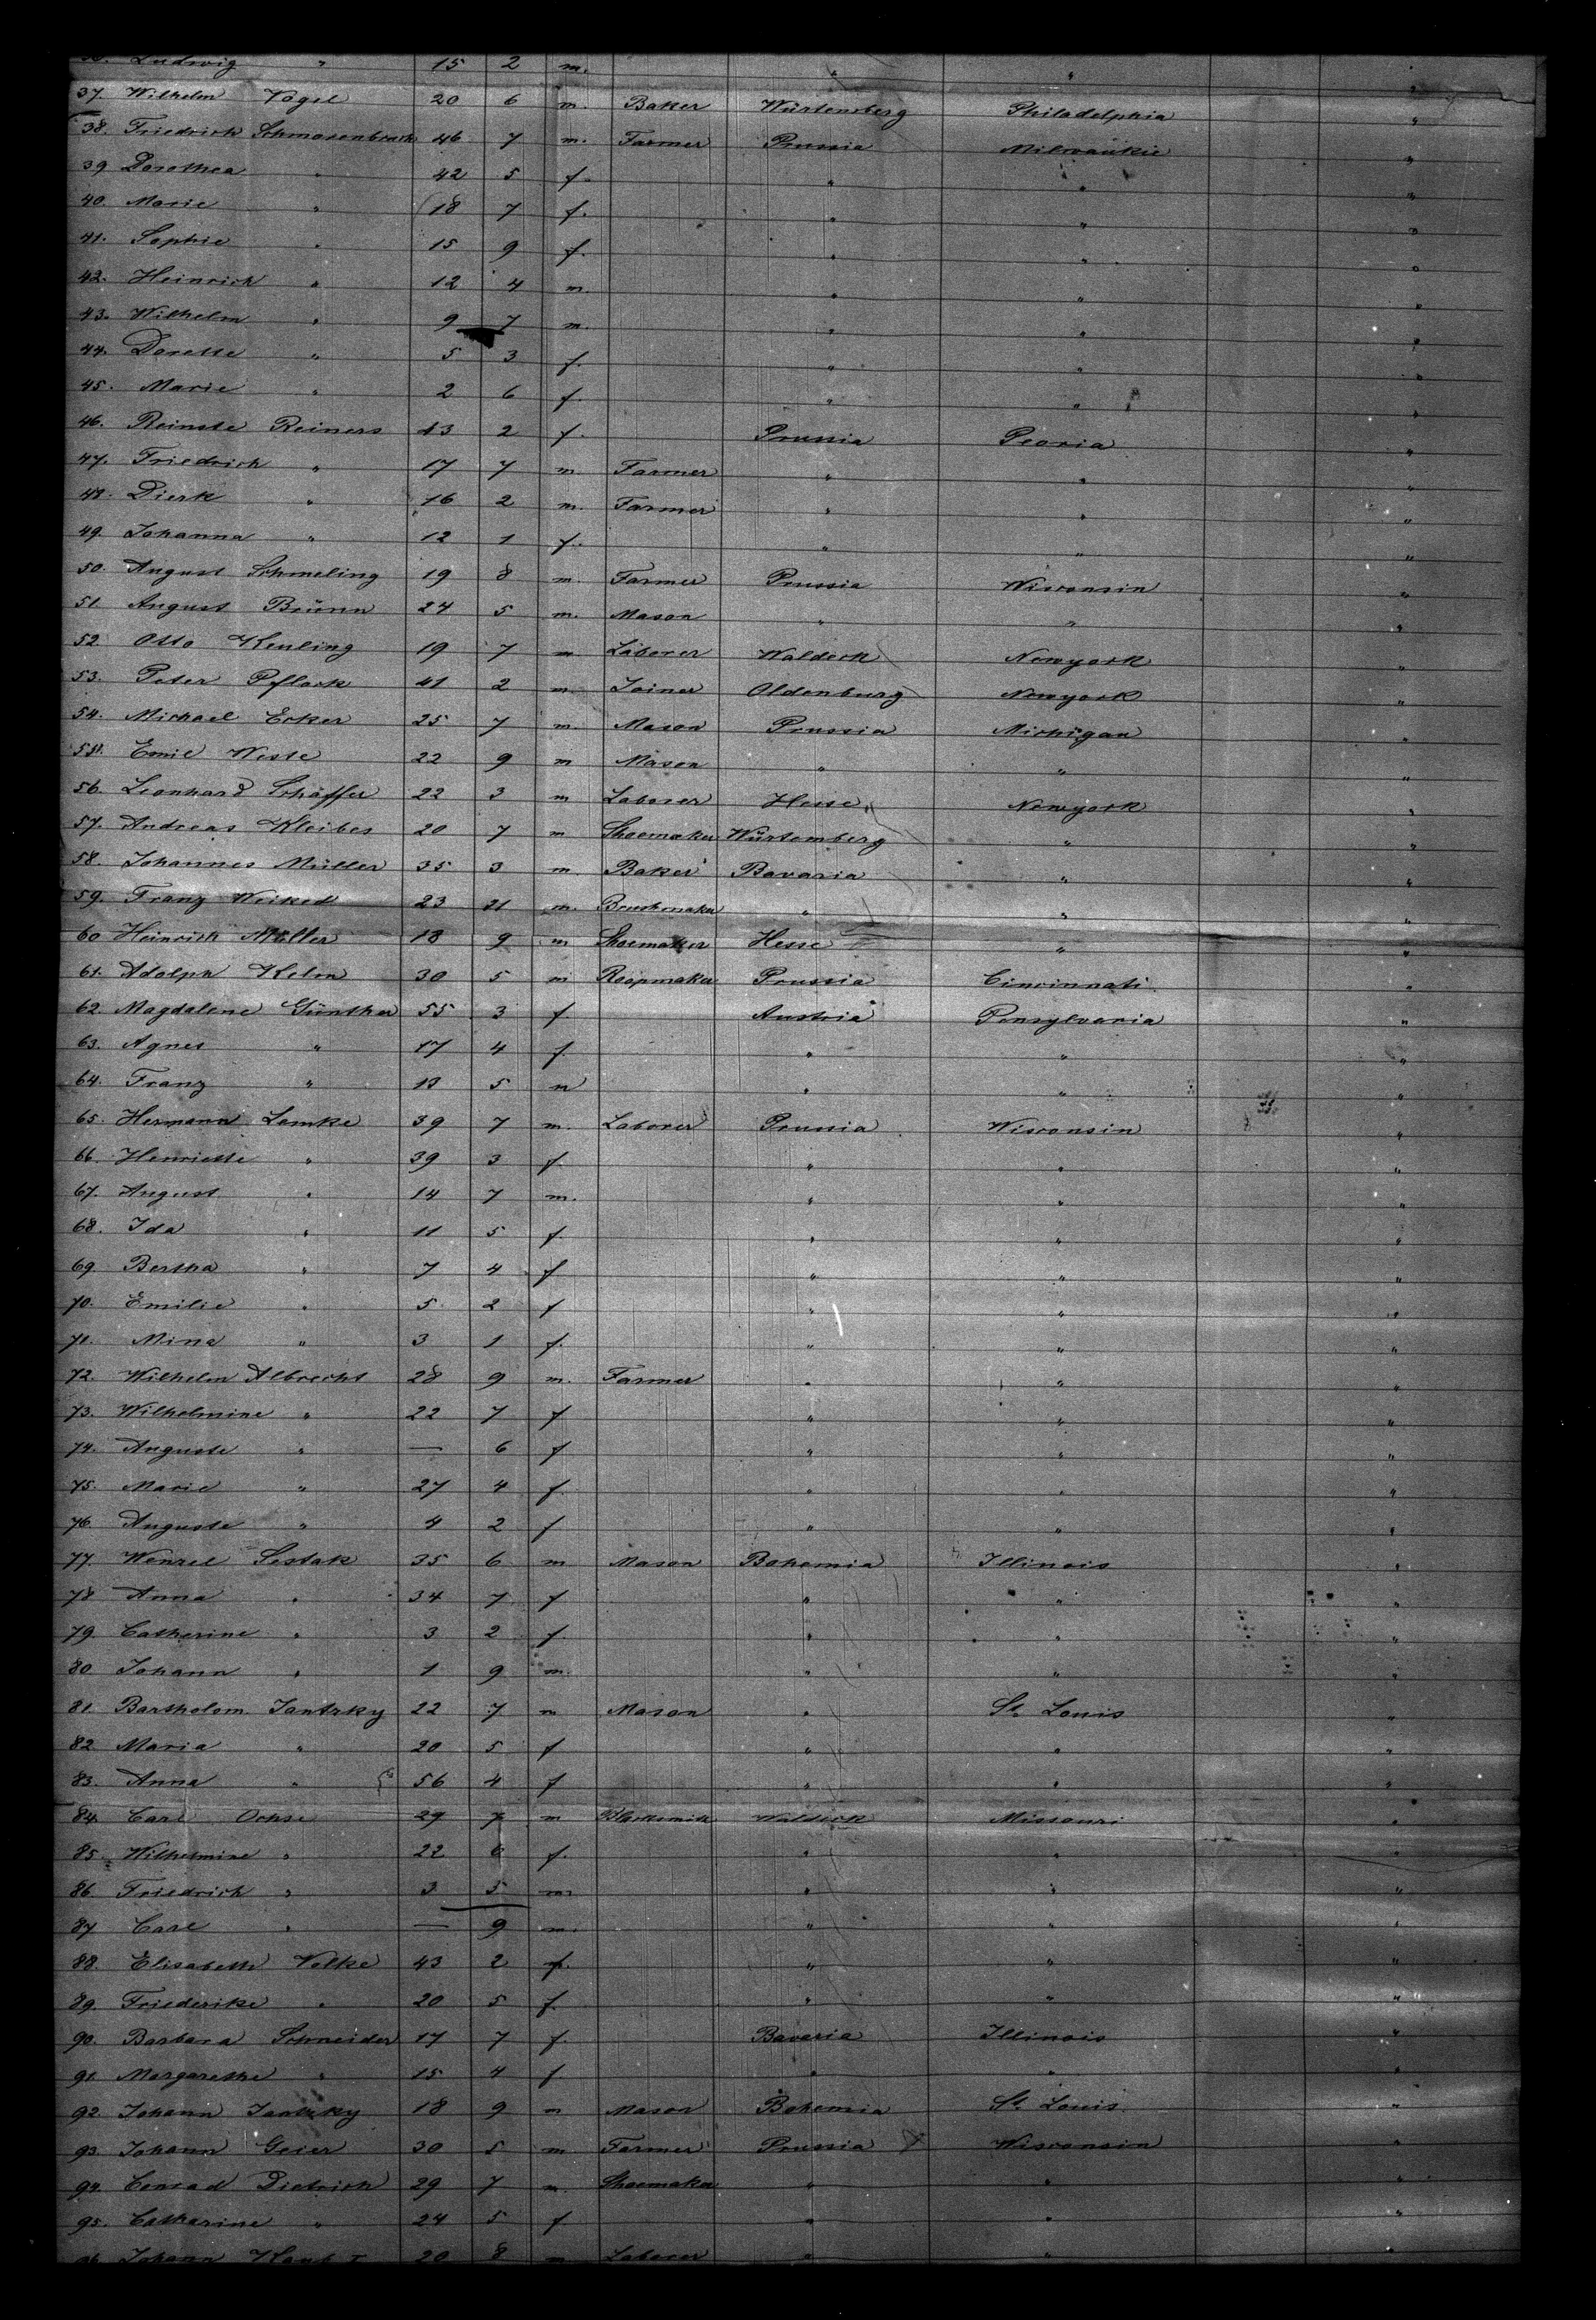 Ludwig " 15 2 m. " "
37. Wilhelm Vogel 20 6 m. Baker Würtemberg Philadelphia "
38. Friedrich 46 7 m. Farmer Prussia Milwaukie "
39 Dorothea " 42 5 f. " " "
40. Marie " 18 7 f. " " "
41. Sophie " 15 9 f. " " "
42. Heinrich " 12 4 m. " " "
43. Wilhelm " 9 7 m. " " "
44. Dorette " 5 3 f. " " "
45. Marie " 2 6 f. " " "
46. Reinste Reiners 43 2 f. Prussia Peoria "
47. Friedrich " 17 7 m. Farmer " " "
48. Dierk " 16 2 m. Farmer " " "
49. Johanna " 12 1 f. " " "
50. August Schmeling 19 8 m. Farmer Prussia Wisconsin "
51. August Brünn 24 5 m. Mason " " "
52. Otto Keuling 19 7 m Laborer Waldeck Newyork "
53. Peter Pflock 41 2 m. Joiner Oldenburg Newyork "
54. Michael Ecker 25 7 m. Mason Prussia Michigan "
55. Emil Weste 22 9 m Mason " " "
56. Leonhard Schäffer 22 3 m Laborer Hesse Newyork "
57. Andreas Kleiber 20 7 m Shoemaker Würtemberg " "
58. Johannes Müller 35 3 m. Baker Bavaria " "
59. Franz 23 m. Brushmaker " " "
60 Heinrich Müller 18 9 m Shoemaker Hesse " "
61. Adolph Kelm 30 5 m Roopmaker Prussia Cincinnati "
62. Magdalene Günther 55 3 f. Austria Pensylvania "
63. Agnes " 17 4 f. " " "
64. Franz " 13 5 m " " "
65. Hermann Lemke 39 7 m. Laborer Prussia Wisconsin "
66. Henriette " 39 3 f. " " "
67. August " 14 7 m. " " "
68. Ida " 11 5 f. " " "
69. Bertha " 7 4 f " " "
70. Emilie " 5 2 f " " "
71. Mina " 3 1 f. " " "
72. Wilhelm Albrecht 28 9 m. Farmer " " "
73. Wilhelmine " 22 7 f " " "
74. Auguste " — 6 f " " "
75. Marie " 27 4 f. " " "
76. Auguste " 4 2 f " " "
77. Wenzel Sestak 35 6 m Mason Bohemia Illinois "
78 Anna " 34 7 f " " "
79. Catherine " 3 2 f. " " "
80 Johann " 1 9 m. " " "
81. Bartholom. Jantzky 22 7 m Mason " St. Louis "
82. Maria " 20 5 f " " "
83. Anna " 56 4 f " " "
84. Carl Ochse 29 7 m Blacksmith Waldeck Missouri "
85. Wilhelmine " 22 6 f. " " "
86. Friedrich " 3 5 m. " " "
87 Carl " — 9 m. " " "
88. Elisabeth Volke 43 2 f. " " "
89. Friederike " 20 5 f. " " "
90. Barbara Schneider 17 7 f. Bavaria Illinois "
91. Margarethe " 15 4 f " " "
92. Johann Jantzky 18 9 m Mason Bohemia St. Louis "
93. Johann Geier 30 5 m Farmer Prussia Wisconsin "
94. Conrad Dietrich 29 7 m. Shoemaker " " "
95. Catharine " 24 5 f " " "
Johann 20 8 m Laborer " "